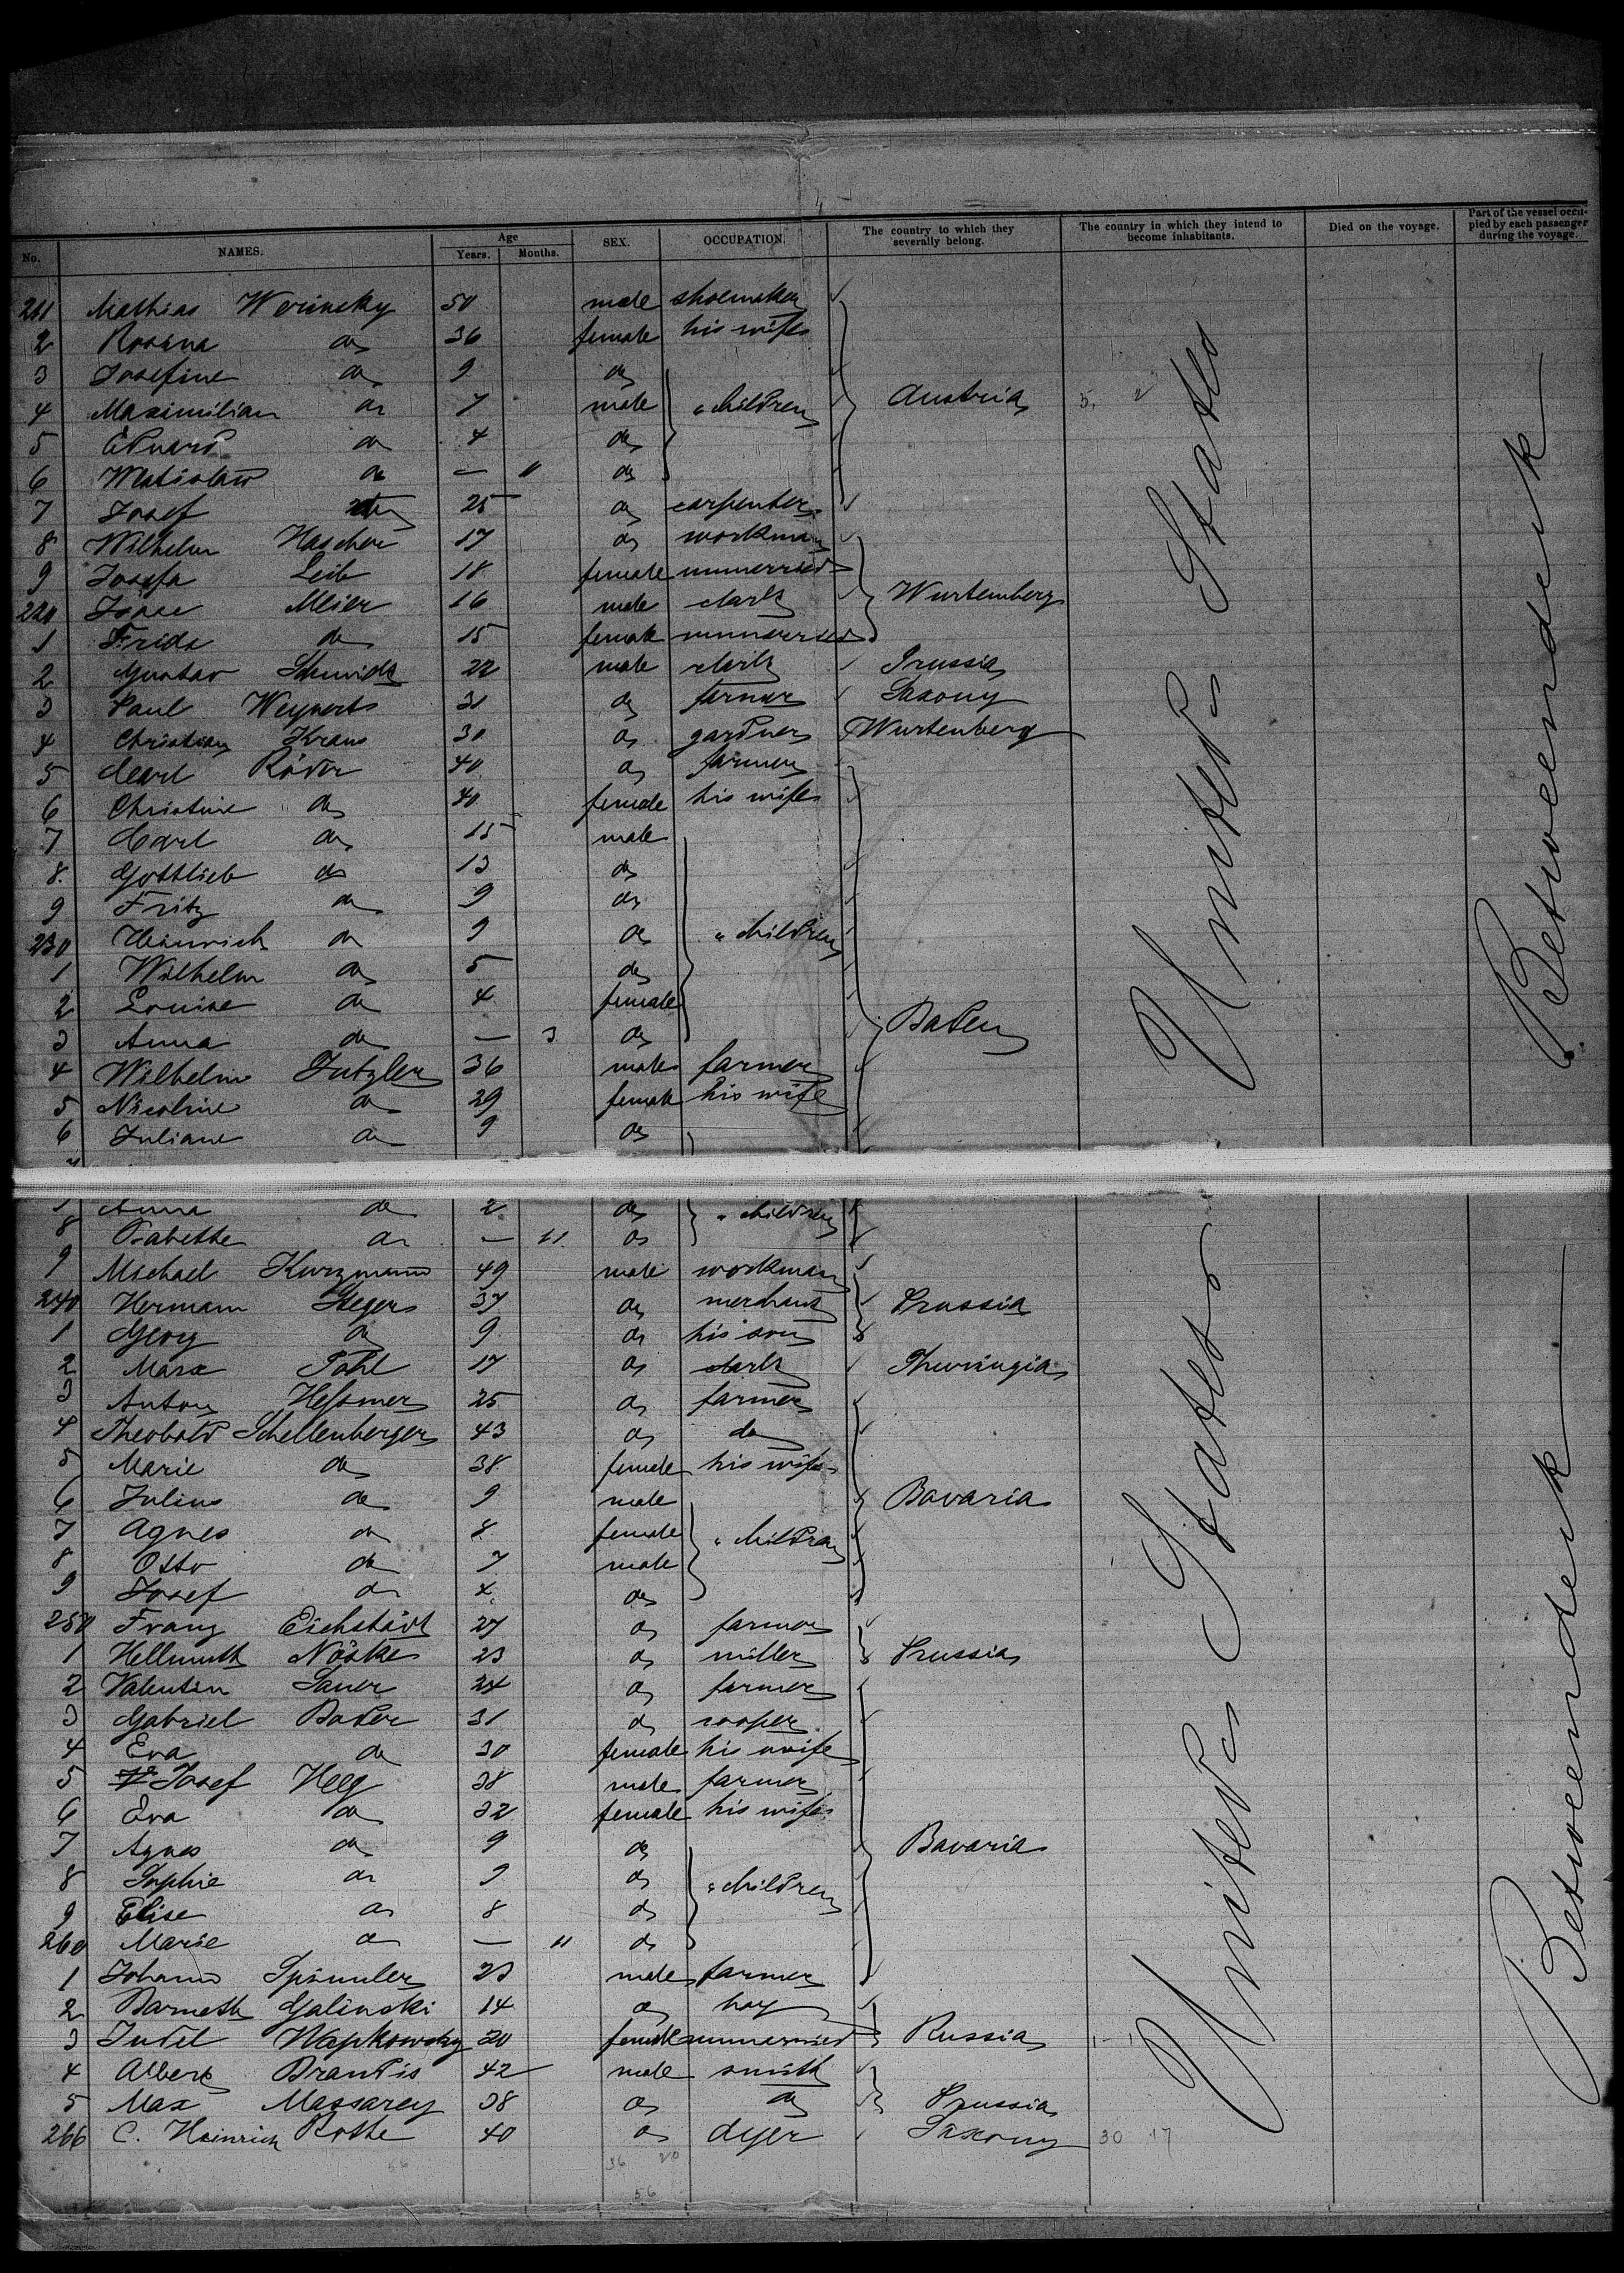 No. NAMES. Age Years. Months. SEX. OCCUPATION. The country to which they severally belong. The country in which they intend to become inhabitants. Died on the voyage. Part of the vessel occupied by each passenger during the voyage.
211 Mathias Werinsky 50 male shoemaker
2 Rosina do 36 female his wife
3 Josefine do 9 do
4 Maximilian do 7 male " children Austria 5.
5 Eduard do 4 do
6 do — 11 do
7 Josef 25 do carpenter
8 Wilhelm Hascher 17 do workman
9 Josefa Leib 18 female unmerried
220 Isaac Meier 16 male clark Wurtemberg
1 Frida do 15 female unmerried
2 Gustav Schmidt 22 male clark Prussia
3 Paul Weyperts 31 do farmer Saxony
4 Christian Kraus 30 do gardner Wurtenberg
5 Carl Röder 40 do farmer
6 Christine do 40 female his wife
7 Carl do 15 male
8 Gottlieb do 13 do
9 Fritz do 9 do
230 Heinrich do 9 do " children
1 Wilhelm do 5 do
2 Louise do 4 female
3 Anna do — 3 do Baden
4 Wilhelm Jutzler 36 male farmer
5 Nicoline do 29 female his wife
6 Juliane do 9 do
United States
Betweendeck
7 Anna do 2 do " children
8 Babette do — 11 do
9 Michael Kurzmann 49 male workman
240 Hermann Steger 37 do merchant Prussia
1 Georg do 9 do his son
2 Marx Pohl 17 do clark Thuringia
3 Anton Heßmer 25 do farmer
4 Theobald Schellenberger 43 do do
5 Marie do 38 female his wife
6 Julius do 9 male Bavaria
7 Agnes do 8 female " children
8 Otto do 7 male
9 Josef do 4 do
250 Franz Eichstädt 27 do farmer
1 Hellmuth Nöske 23 do miller Prussia
2 Valentin Sauer 24 do farmer
3 Gabriel Bader 31 do cooper
4 Eva do 30 female his wife
5 Josef Heeg 38 male farmer
6 Eva do 32 female his wife
7 Agnes do 9 do Bavaria
8 Sophie do 9 do " children
9 Elise do 8 do
260 Marie do — 11 do
1 Johann Spimler 23 male farmer
2 Barneth Galinski 14 do boy
3 Judel Wapkowsky 20 female unmerried Russia 1 - 1
4 Albert Brandis 42 male smith
5 Max Massarey 38 do do Prussia
266 C. Heinrich Rothe 40 do dyer Saxony 30 17
36 20
56
56
United States
Betweendeck